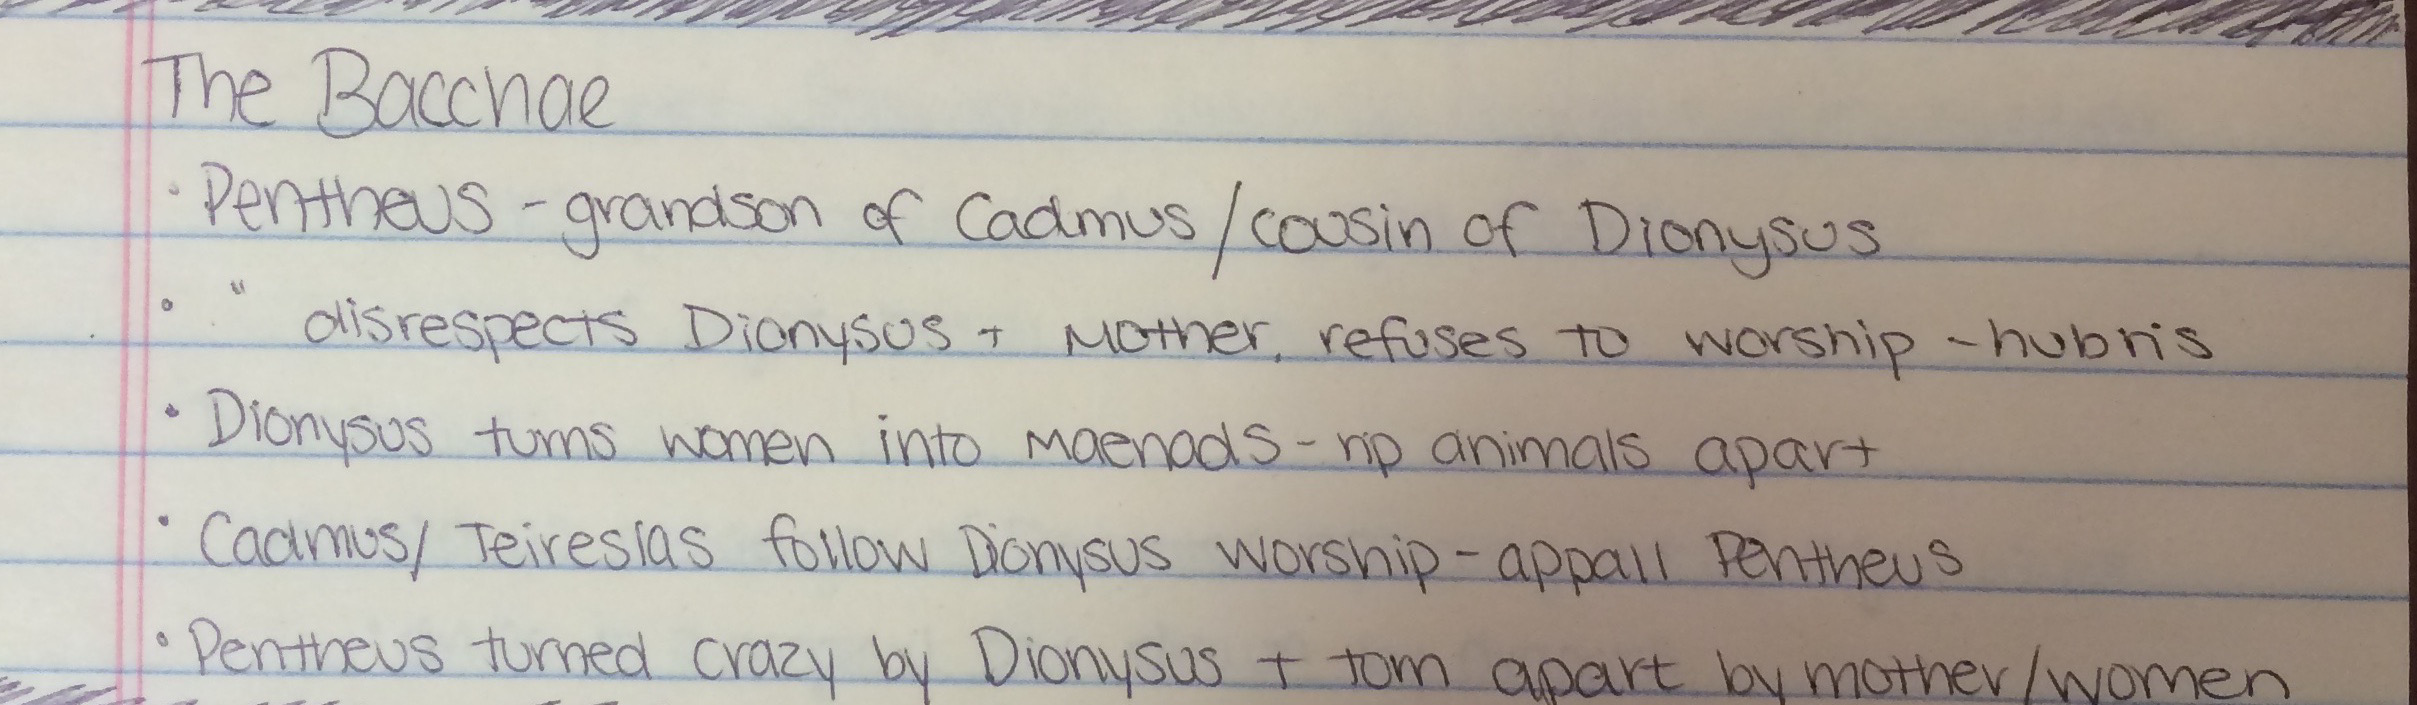 The Bacchae
· Pentheus - grandson of Cadmus / cousin of Dionysus
· " disrespects Dionysus + Mother, refuses to worship - hubris
· Dionysus turns women into Maenads - rip animals apart
· Cadmus / Teiresias follow Dionysus worship - appall Pentheus
· Pentheus turned crazy by Dionysus + torn apart by mother/women